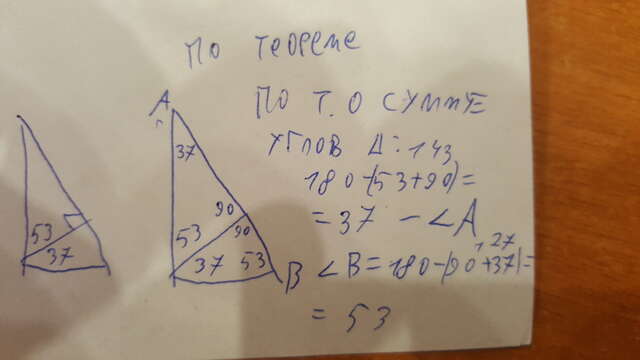 ПО ТЕОРЕМЕ
ПО Т.О СУММЕ
УГЛОВ Δ: 143
180-(53+90)=
= 37 - ∠A
∠B = 180-(90+37)=
127
= 53
A
37
90
53
90
37
53
B
53
37